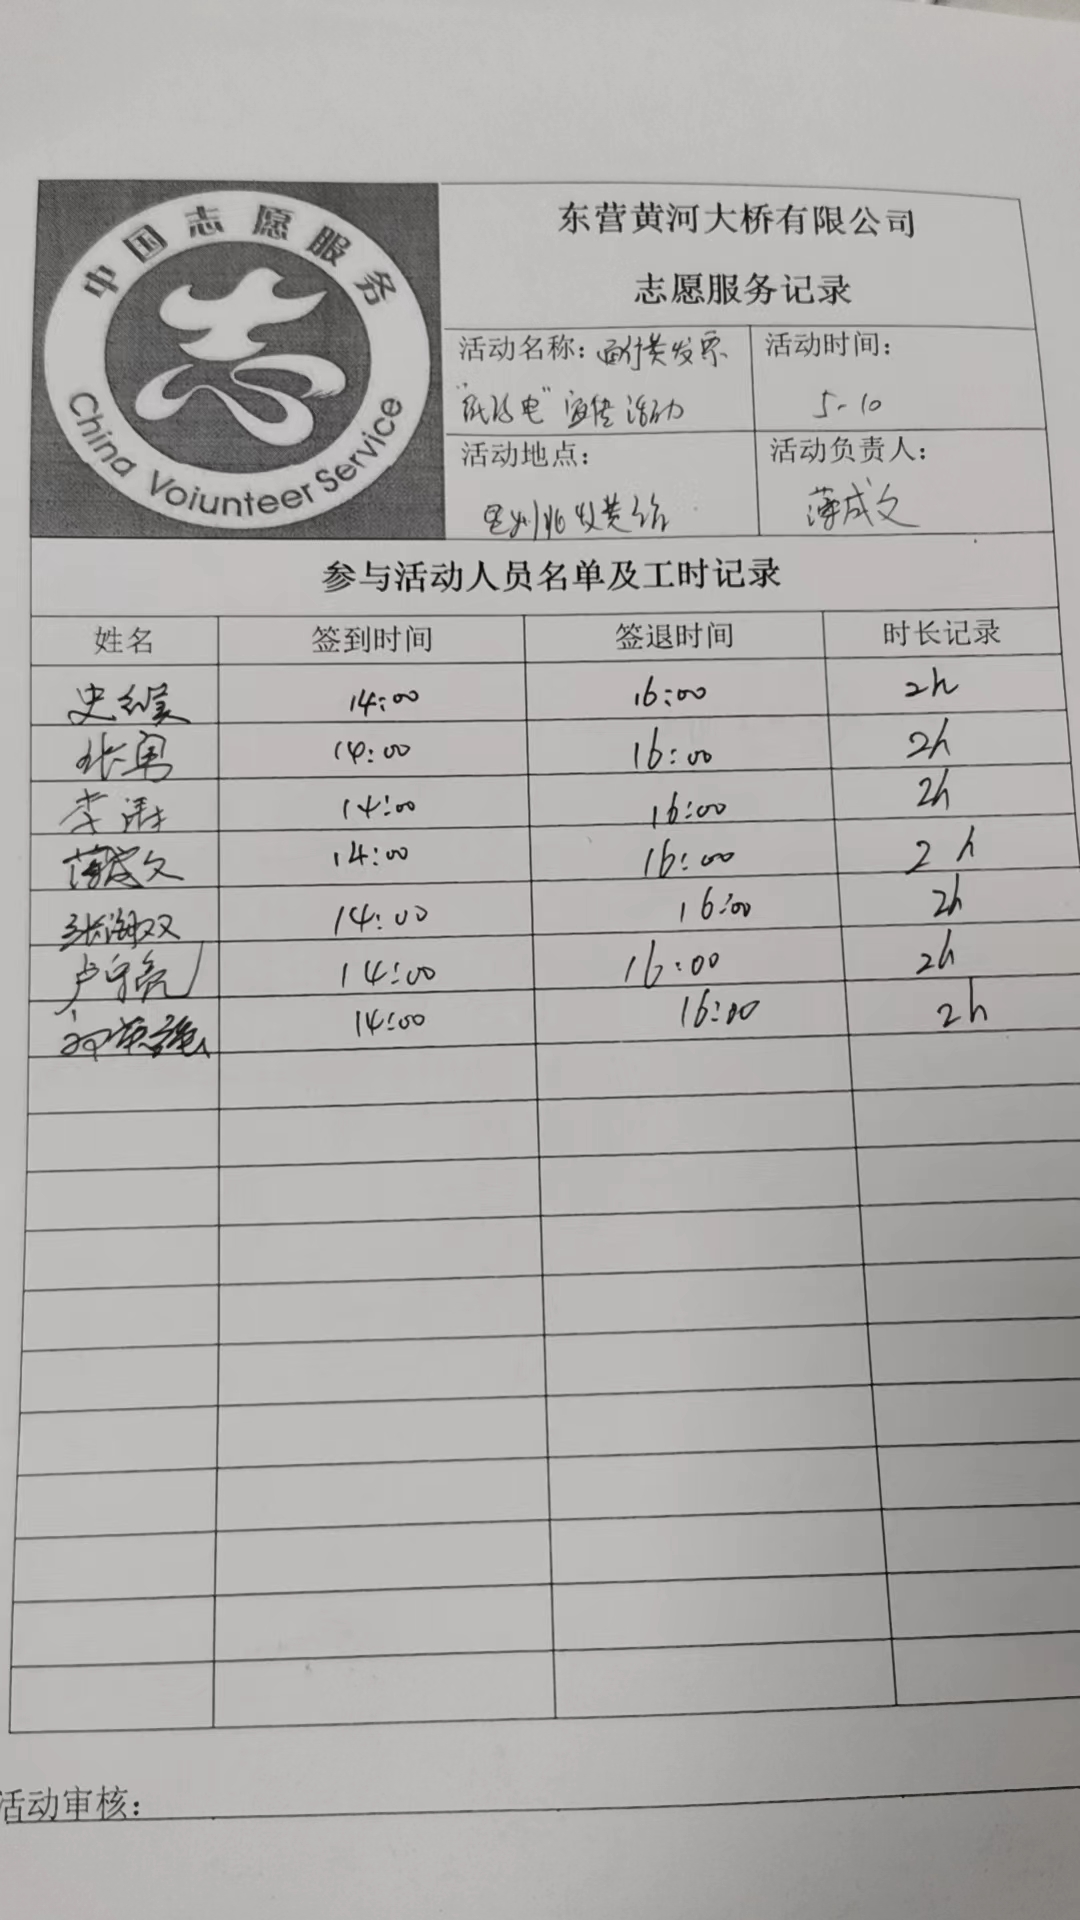 中国志愿服务
China Voiunteer Service
东营黄河大桥有限公司
志愿服务记录
活动名称：通行费发票
"纸改电"宣传活动
活动时间：
5-10
活动地点：
收费站
活动负责人：
薄成文
参与活动人员名单及工时记录
姓名 签到时间 签退时间 时长记录
史 14:00 16:00 2h
张勇 14:00 16:00 2h
李 14:00 16:00 2h
薄成文 14:00 16:00 2h
张海双 14:00 16:00 2h
卢守亮 14:00 16:00 2h
14:00 16:00 2h
活动审核：